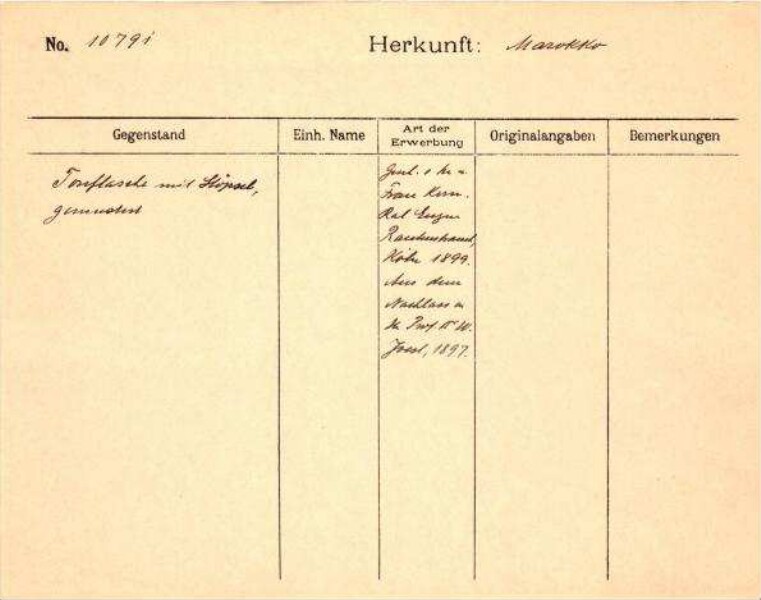 No. 1079i
Herkunft: Marokko
Gegenstand
Einh. Name
Art der
Erwerbung
Originalangaben
Bemerkungen
Tonflasche mit Stöpsel,
gemustert
Frau Kom.
Rat Eugen
Rautenstrauch,
Köln 1899.
Aus dem
Nachlass
Prof. Dr. W.
Joest, 1897.